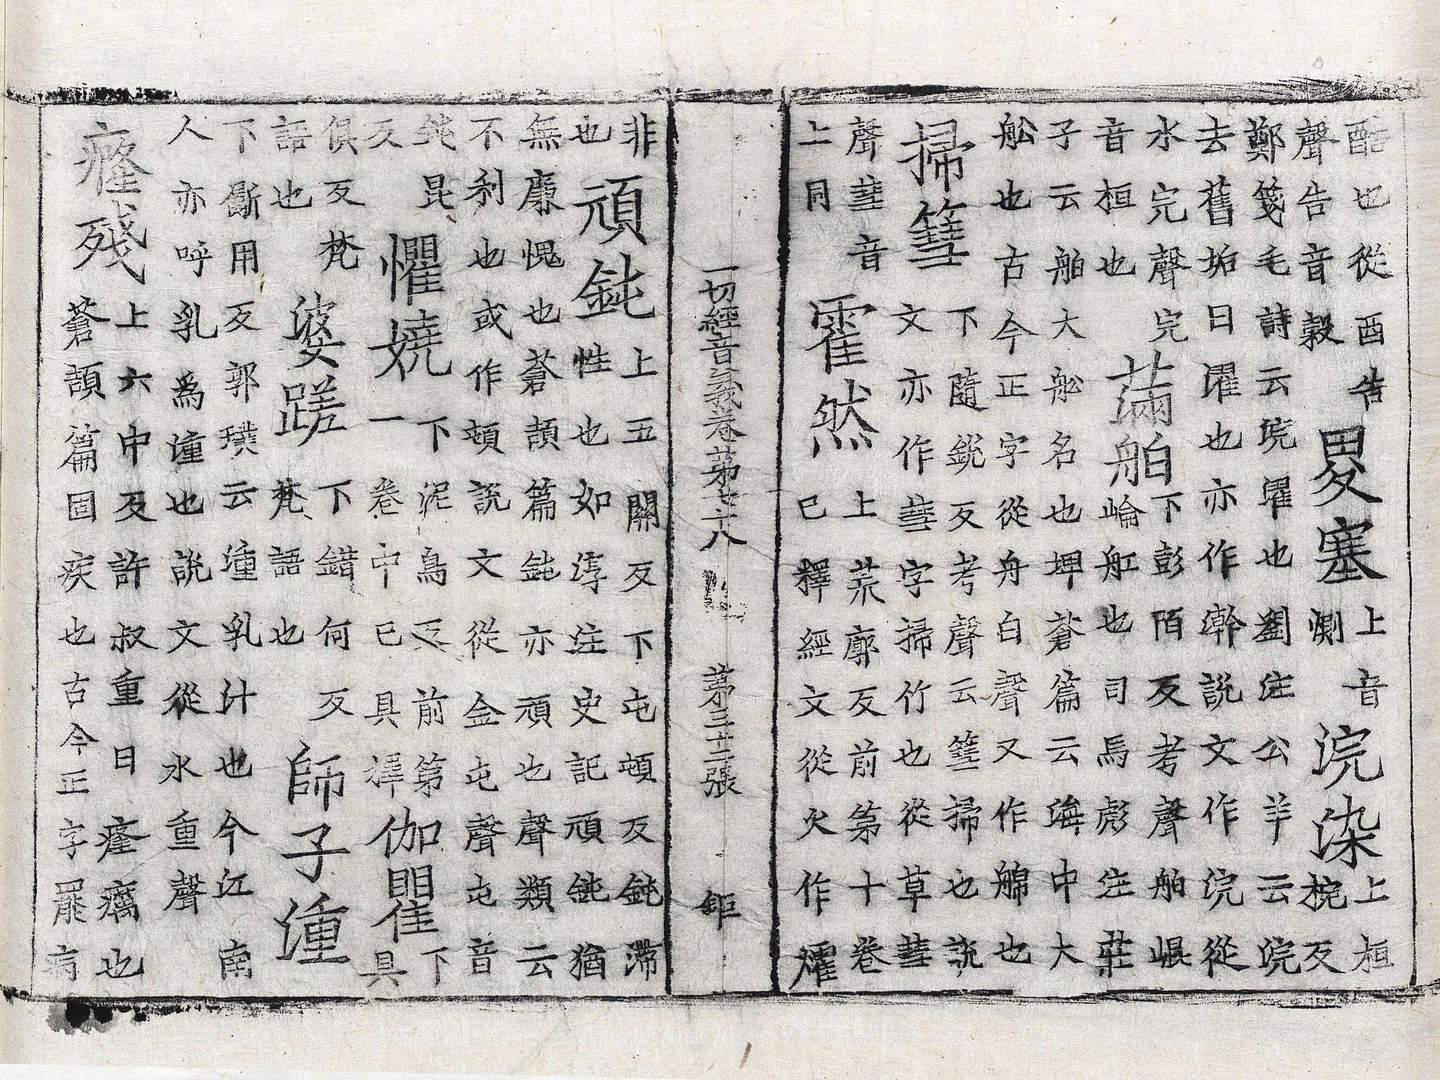 酷也從酉告
聲告音穀
畟塞
上音
惻
浣染
上桓
椀反
鄭箋毛詩云浣濯也劉注公羊云浣
去舊垢曰濯也亦作澣說文作浣從
水完聲完
音桓也
舶
下彭陌反考聲舶崐
崘舡也司馬彪注莊
子云舶大舩名也埤蒼篇云海中大
舩也古今正字從舟白聲又作艊也
掃篲
下隨銳反考聲云篲掃也說
文亦作彗字掃竹也從草彗
聲彗音
上同
霍然
上荒廓反前第十卷
已釋經文從火作㸌
一切經音義卷第七十八 第三十二張 鉅
頑鈍
非
上五關反下屯頓反鈍滯
也性也如淳注史記頑鈍猶
無廉愧也蒼頡篇鈍亦頑也聲類云
不利也或作頓說文從金屯聲屯音
鈍昆
反
懼嬈
下泥鳥反前第
一卷中已具釋
伽瞿
下具
俱反梵
語也
婆蹉
下錯何反
梵語也
師子湩
下斵用反郭璞云湩乳汁也今江南
人亦呼乳爲湩也說文從水重聲
癃殘
上六中反許叔重曰癃癘也
蒼頡篇固疾也古今正字罷病